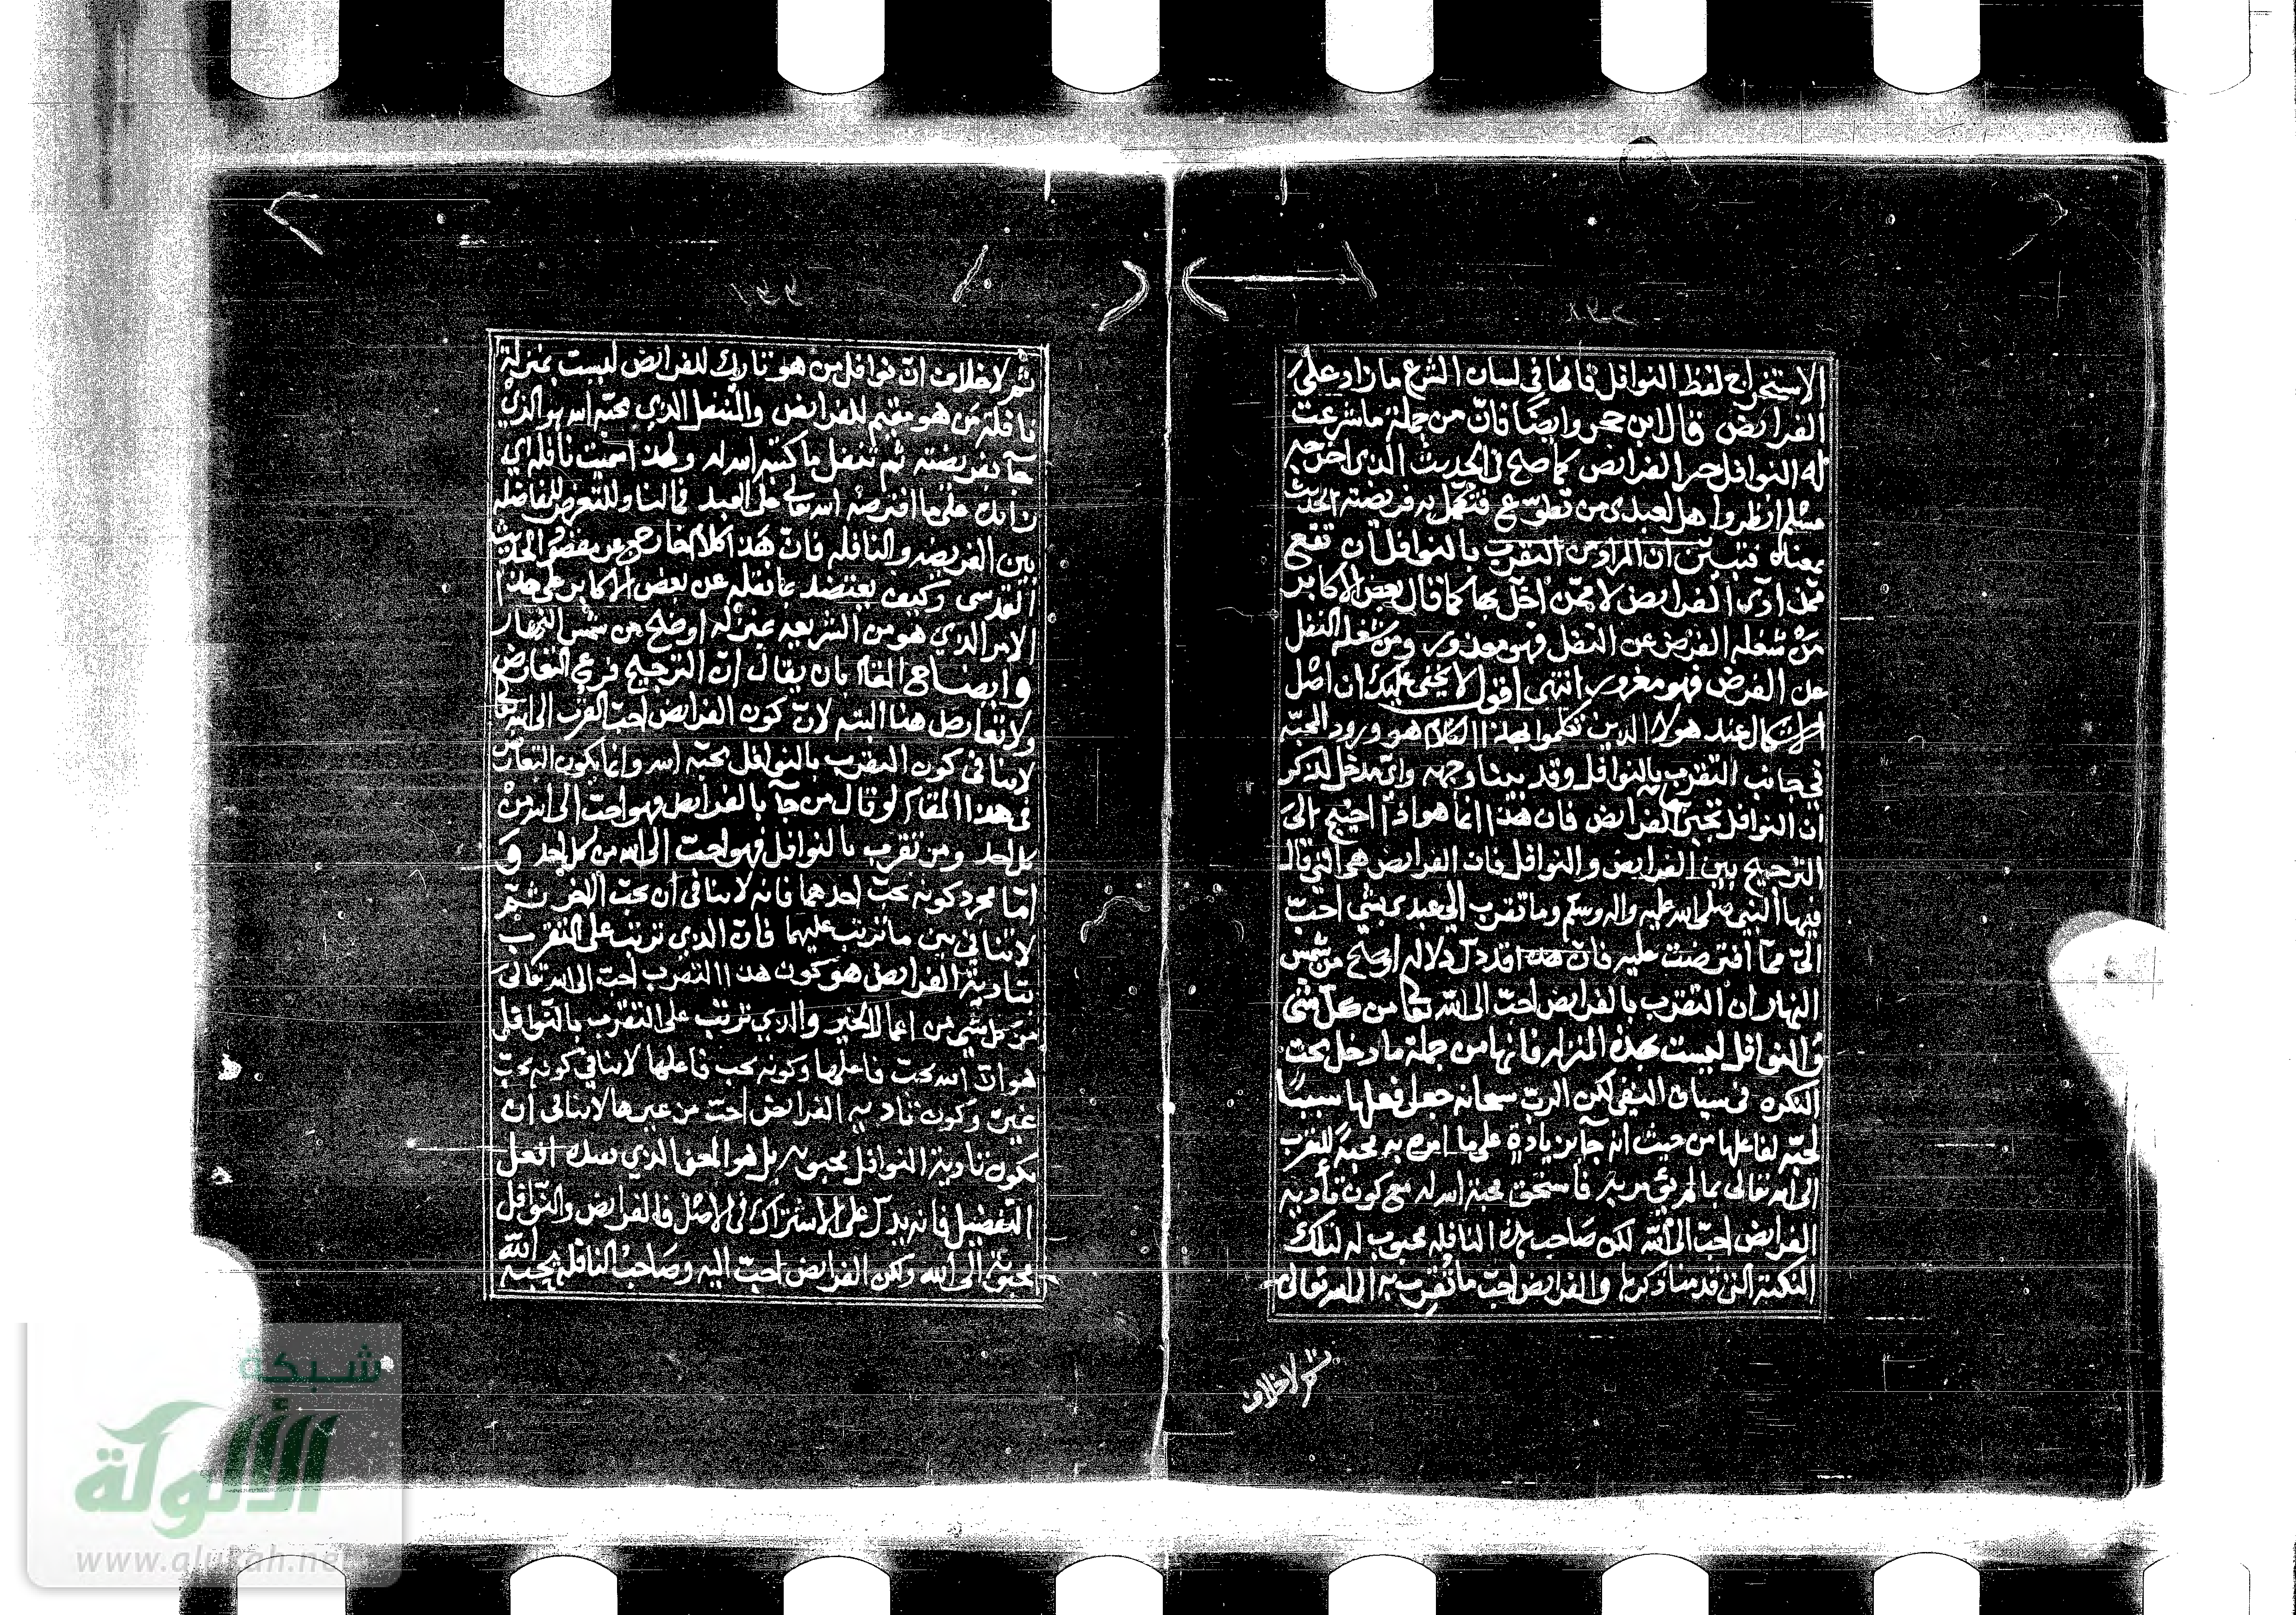 الاستخراج لفظ النوافل فانها في لسان الشرع ما زاد على
الفرايض قال ابن حجر وايضا فان من جملة ما شرعت
له النوافل جبر الفرايض كما صح في الحديث الذي اخرجه
مسلم انظروا هل لعبدي من تطوع فتكمل به فريضته الحديث
بمعناه فتبين ان المراد من التقرب بالنوافل ان تقع
ممن ادى الفرايض لا ممن اخل بها كما قال بعض الاكابر
من شغله الفرض عن النفل فهو معذور ومن شغله النفل
عن الفرض فهو مغرور انتهى اقول لا يخفى عليك ان اصل
الاشكال عند هولا الذين تكلموا بهذا الكلام هو ورود المحبة
في جانب التقرب بالنوافل وقد بينا وجهه واي مدخل لذكر
ان النوافل تجبر بها الفرايض فان هذا انما هو اذا احتيج الى
الترجيح بين الفرايض والنوافل فان الفرايض هي التي قال
فيها النبي صلى الله عليه واله وسلم وما تقرب الي عبدي بشي احب
الي مما افترضت عليه فان هذا قد دل دلاله اوضح من شمس
النهار ان التقرب بالفرايض احب الى الله تعا من كل شي
والنوافل ليست بهذه المنزله فانها من جملة ما دخل تحت
النكره في سياق النفي لكن الرب سبحانه جعل فعلها سببًا
لمحبه لفاعلها من حيث انه جآ بزيادة على ما امره به محبة للتقرب
الى الله تعالى بما لم يؤمر به فاستحق محبة الله له مع كون تأديه
الفرايض احب الى الله لكن صاحب هذه النافله محبوب له لتلك
النكتة التي قدمنا ذكرها والفرايض احب ما تقرب به الى الله تعالى
ثم لا خلاف
ثم لا خلاف ان نوافل من هو تارك للفرايض ليست بمنزلة
نافلة من هو مقيم للفرايض والمتنفل الذي محبه الله هو الذي
جآ بفريضته ثم تنفل ما كتبه الله له ولهذا سميت نافله اي
زائد على ما افترضه الله تعالى على العبد فما لنا وللتعرض للمفاضله
بين الفريضه والنافله فان هذا كلام خارج عن مقصود الحديث
القدسي وكيف يعتضد بما نقله عن بعض الاكابر على هذا
الامر الذي هو من الشريعه بمنزله اوضح من شمس النهار
وايضا مع القا بان يقال ان الترجيح فرع التعارض
ولا تعارض هنا البته لان كون الفرايض احب القرب الى الله تعا
لا ينافي كون المتقرب بالنوافل يحبه الله وانما يكون التعارض
في هذا المقام لو قال من جآ بالفرايض فهو احب الى الله من
كل احد ومن تقرب بالنوافل فهو احب الى الله من كل احد و
اما مجرد كونه يحب احدهما فانه لا ينافي ان يحب الاخر ثم
لا تنافي بين ما ترتب عليهما فان الذي ترتب على التقرب
بتادية الفرايض هو كون هذا التقرب احب الى الله تعالى
من كل شي من اعمال الخير والذي ترتب على التقرب بالنوافل
هو ان الله يحب فاعلها وكونه يحب فاعلها لا ينافي كونه يحب
غيره وكون تاديه الفرائض احب من غيرها لا ينافي ان
يكون تادية النوافل محبوبه بل هو المعنى الذي افعل
التفضيل فانه يدل على الاشتراك في الاصل فالفرايض والنوافل
محبوبة الى الله ولكن الفرايض احب اليه وصاحب النافله يحبه الله
شبكة
الألوكة
www.alukah.net